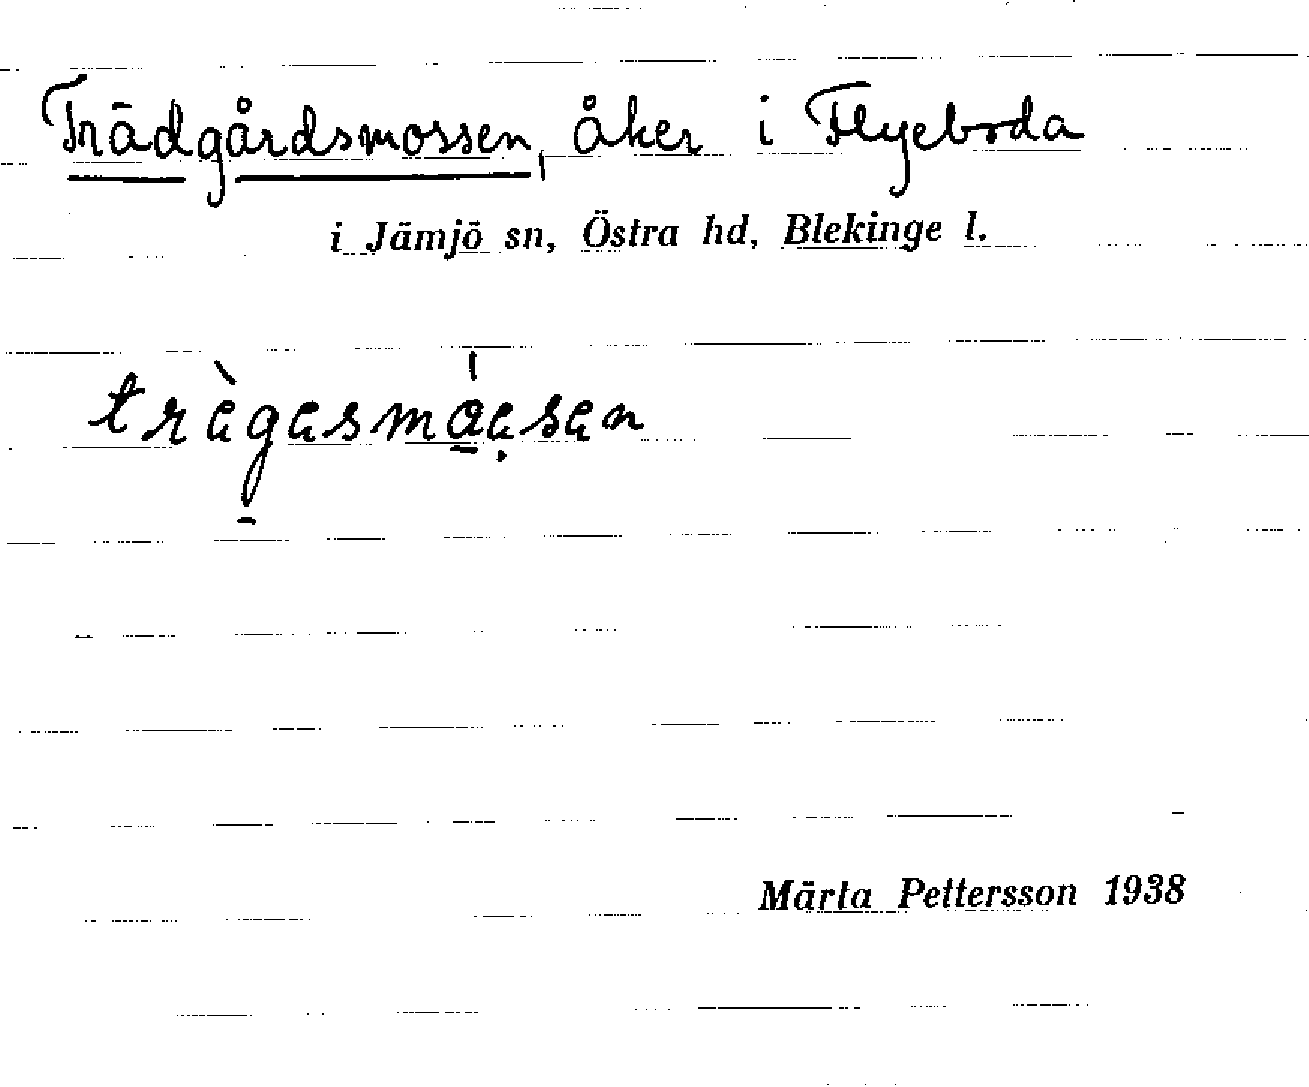 Trädgårdsmossen, åker i Flyeboda
i Jämjö sn, Östra hd, Blekinge l.
Märta Pettersson 1938